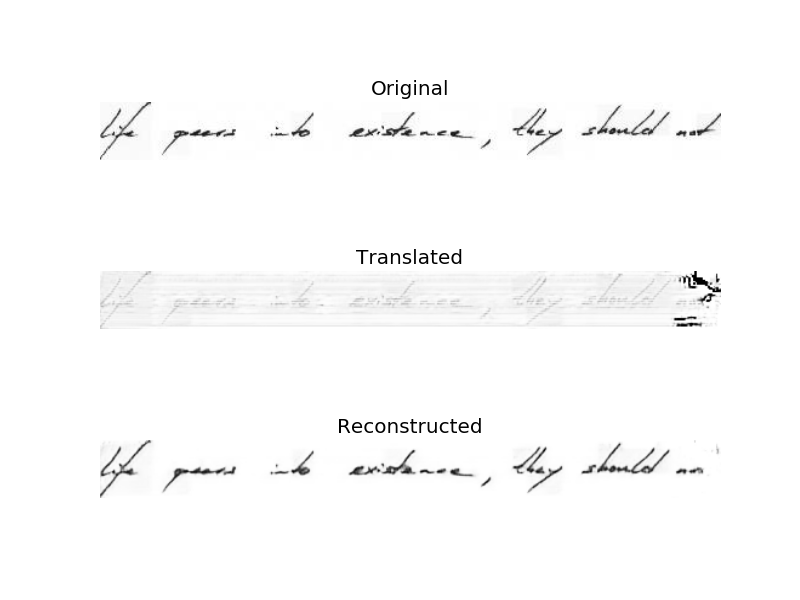 Original
life peers into existence, they should not
Translated
life peers into existence, they should
Reconstructed
life peers into existence, they should